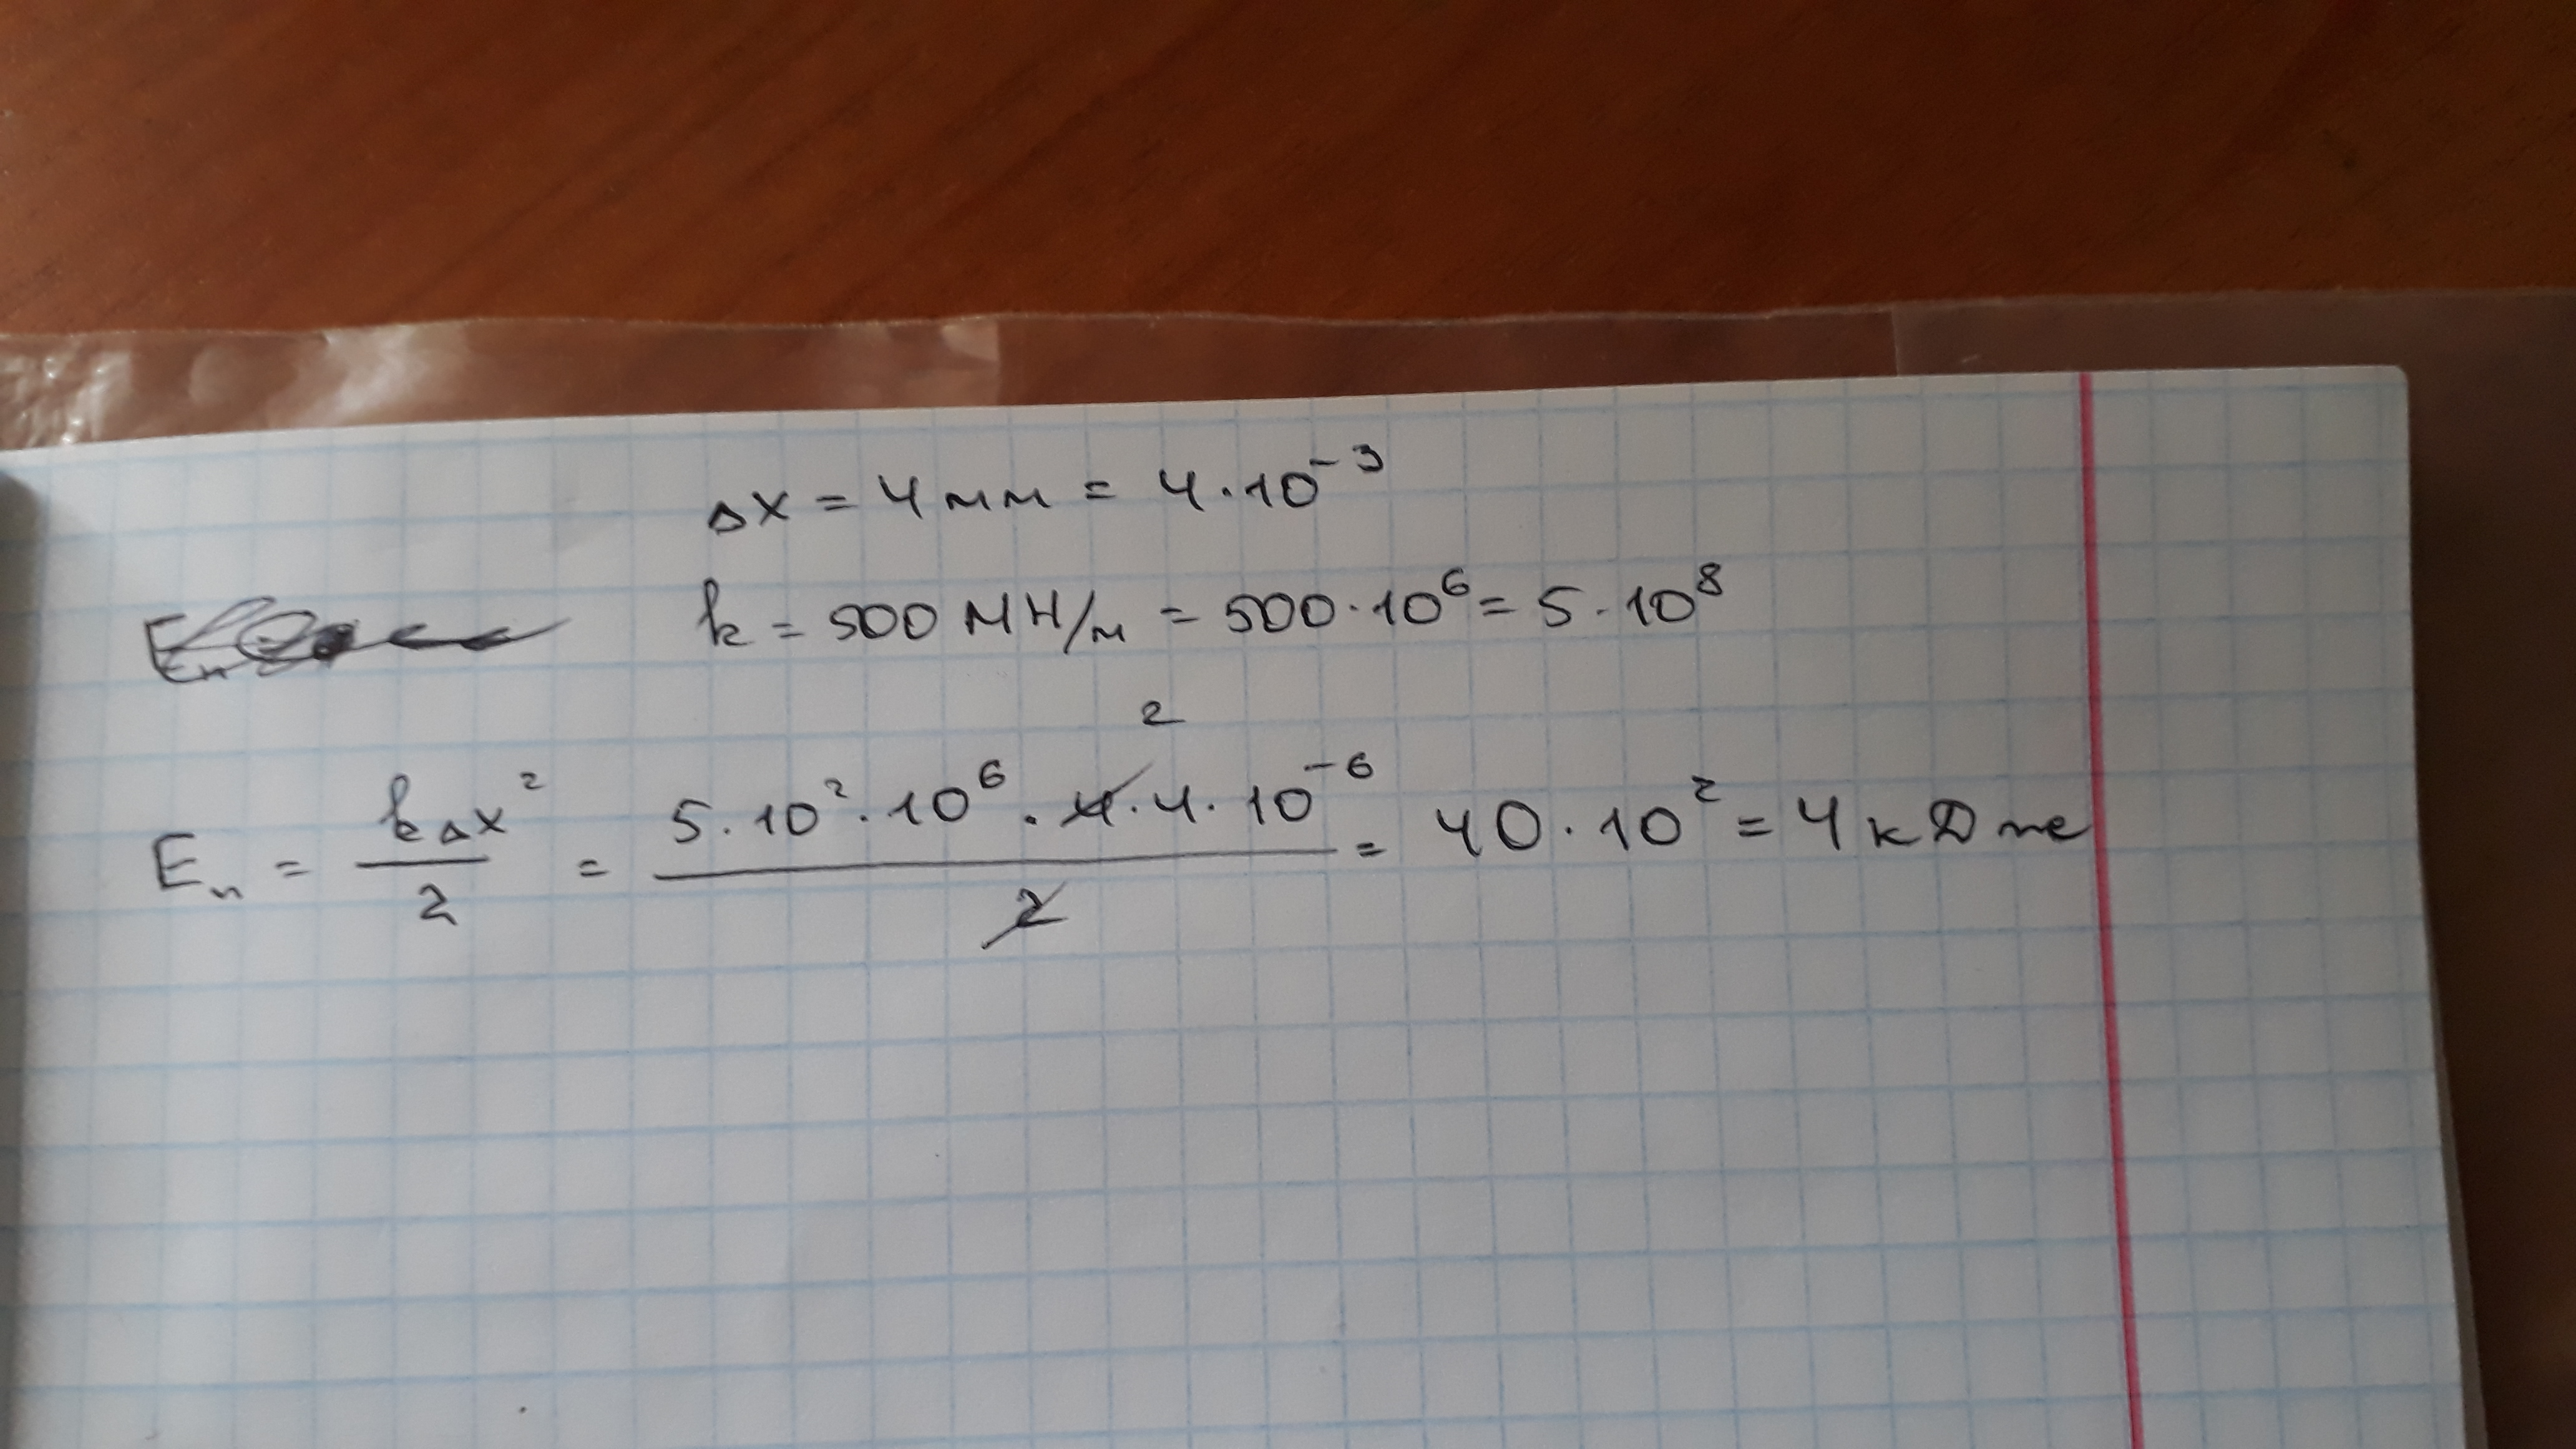 Δx = 4 мм = 4·10⁻³
k = 500 МН/м = 500·10⁶ = 5·10⁸
Eₙ = kΔx²/2 = 5·10²·10⁶·4·4·10⁻⁶/2 = 40·10² = 4 кДж
2